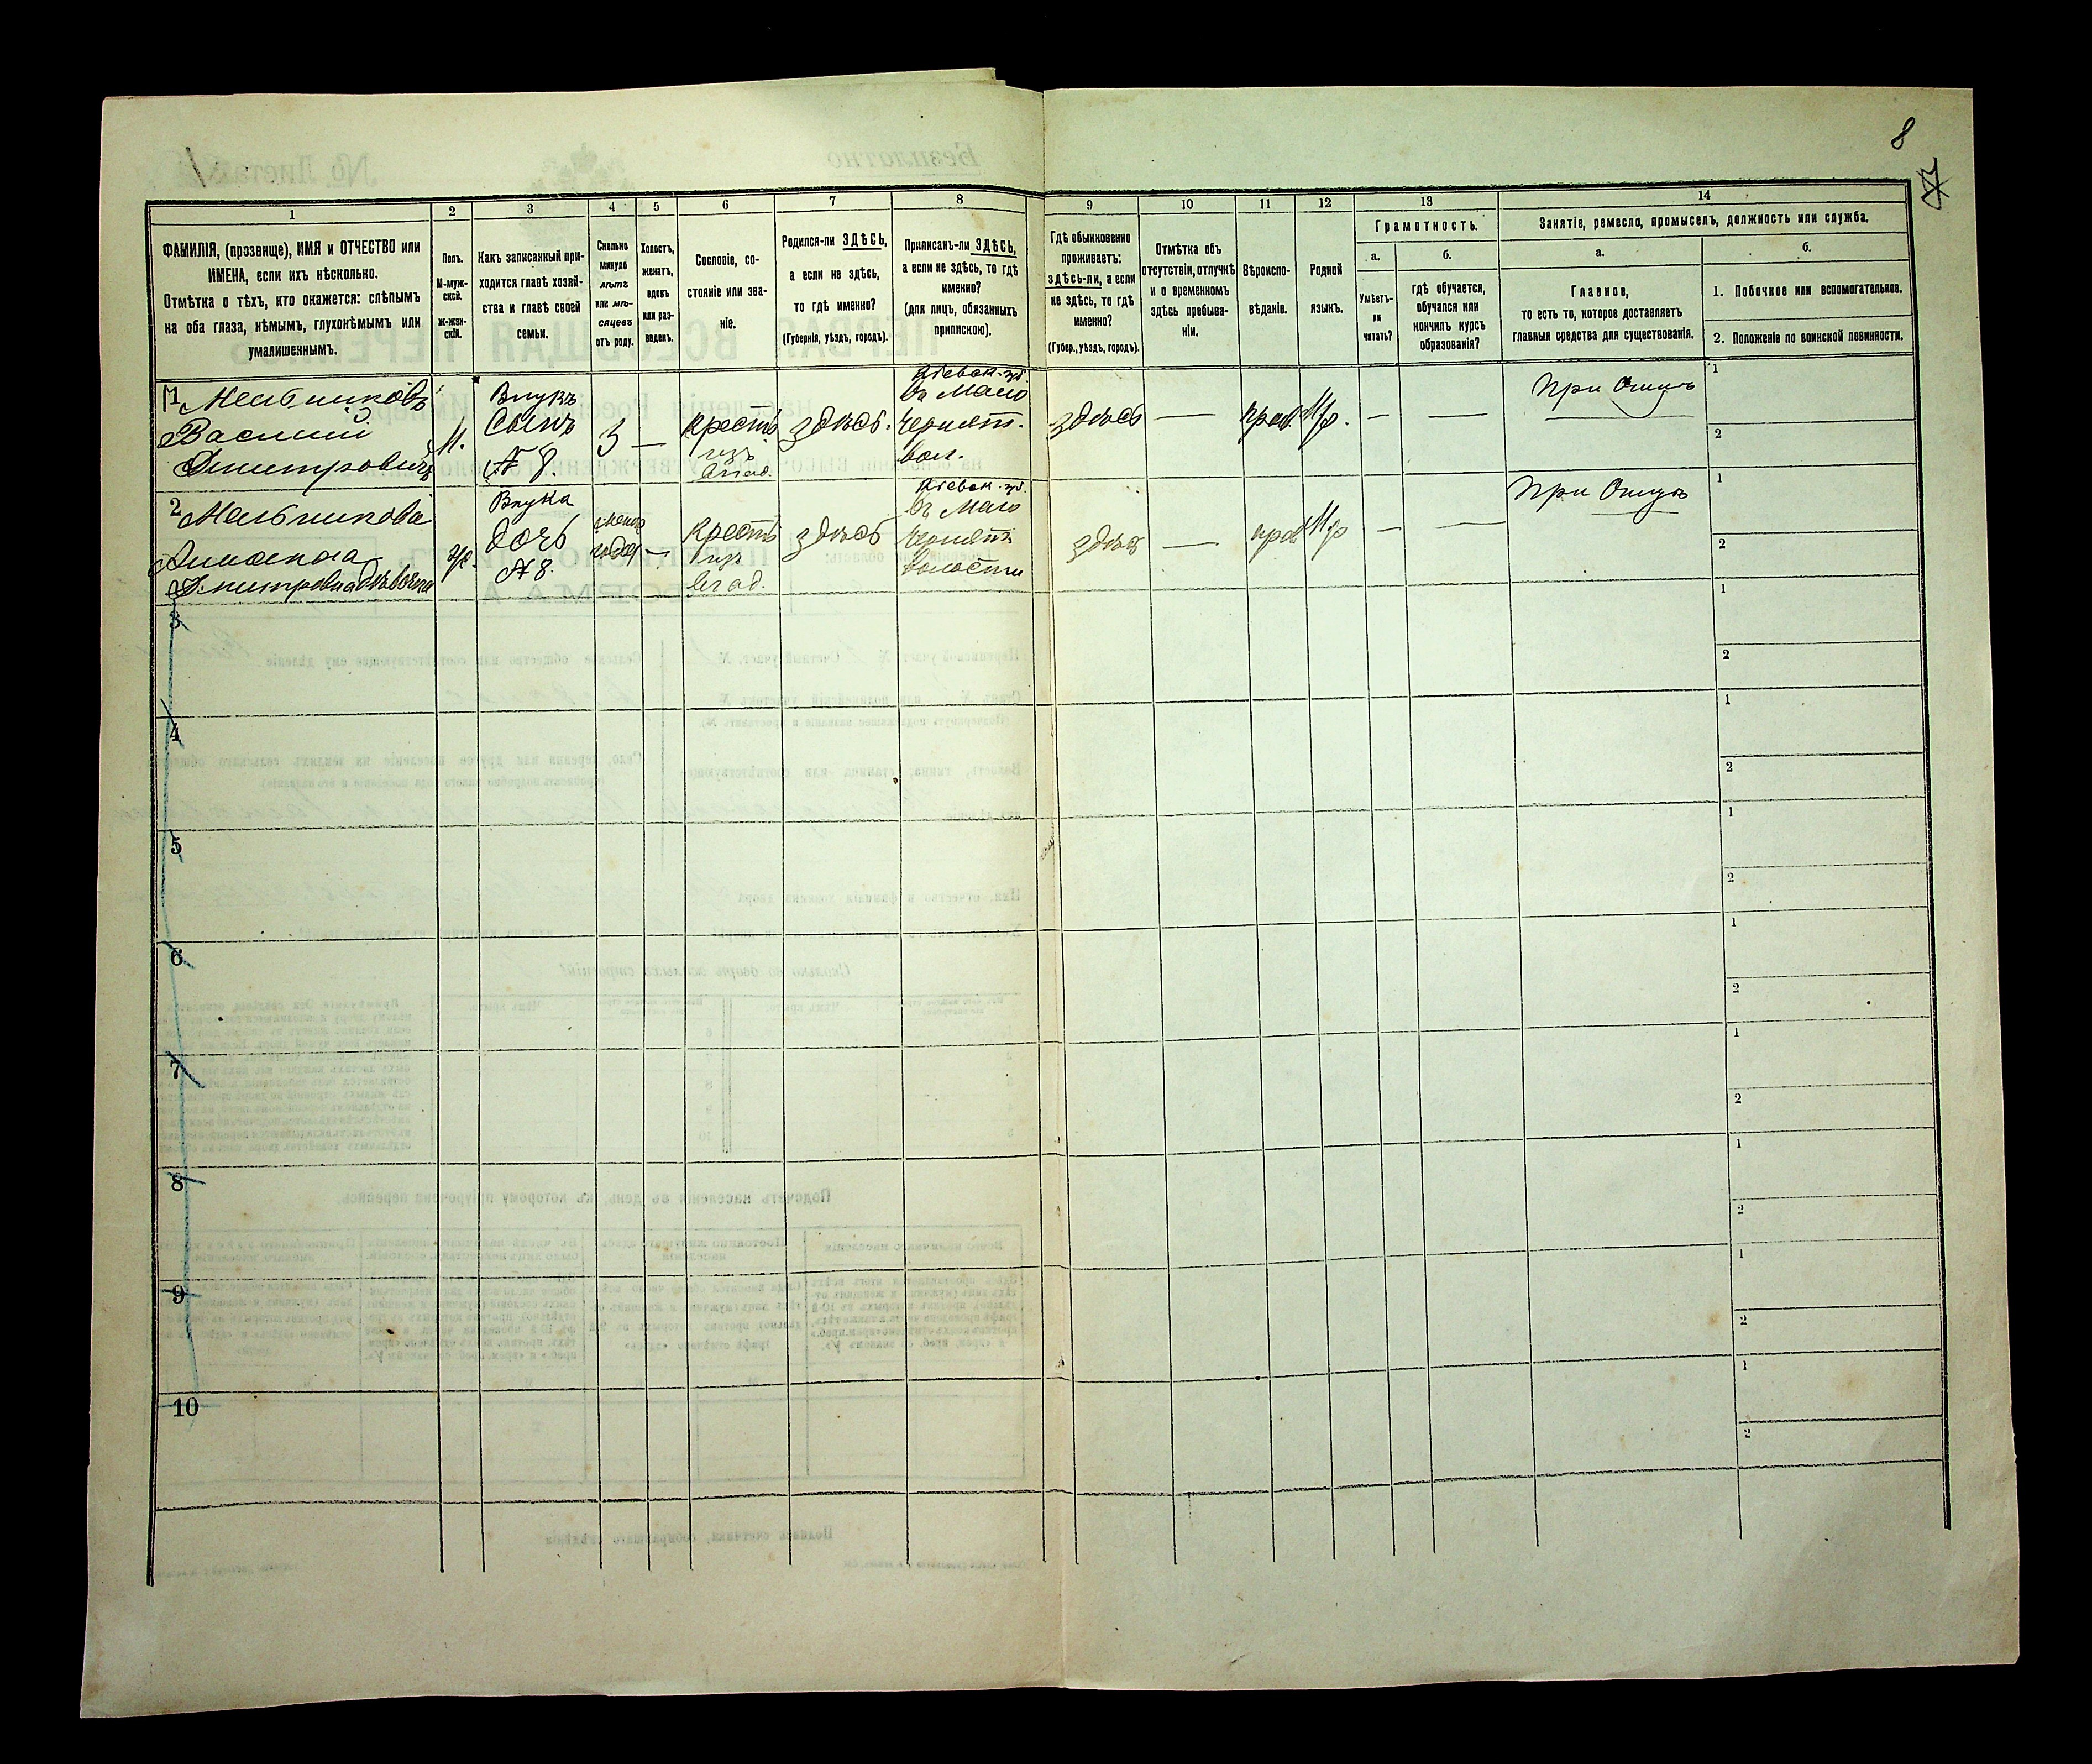 8
1
1
2
3
4
5
6
7
8
9
10
11
12
13
14
ФАМИЛІЯ, (прозвище), ИМЯ и ОТЧЕСТВО или
ИМЕНА, если ихъ нѣсколько.
Отмѣтка о тѣхъ, кто окажется: слѣпымъ
на оба глаза, нѣмымъ, глухонѣмымъ или
умалишеннымъ.
Полъ.
М-муж-
ской.
Ж-жен-
скій.
Какъ записанный при-
ходится главѣ хозяй-
ства и главѣ своей
семьи.
Сколько
минуло
лѣтъ
или мѣ-
сяцевъ
отъ роду.
Холостъ,
женатъ,
вдовъ
или раз-
веденъ.
Сословіе, со-
стояніе или зва-
ніе.
Родился-ли ЗДѢСЬ,
а если не здѣсь,
то гдѣ именно?
(Губернія, уѣздъ, городъ).
Приписанъ-ли ЗДѢСЬ,
а если не здѣсь, то гдѣ
именно?
(для лицъ, обязанныхъ
припискою).
Гдѣ обыкновенно
проживаетъ:
здѣсь-ли, а если
не здѣсь, то гдѣ
именно?
(Губер., уѣздъ, городъ).
Отмѣтка объ
отсутствіи, отлучкѣ
и о временномъ
здѣсь пребыва-
ніи.
Вѣроиспо-
вѣданіе.
Родной
языкъ.
Грамотность.
а.
Умѣетъ-
ли
читать?
б.
гдѣ обучается,
обучался или
кончилъ курсъ
образованія?
Занятіе, ремесло, промыселъ, должность или служба.
а.
Главное,
то есть то, которое доставляетъ
главныя средства для существованія.
б.
1. Побочное или вспомогательное.
2. Положеніе по воинской повинности.
1
Мельниковъ
Василий
Дмитровичъ
М.
Внукъ
Сынъ
№ 8.
3
—
Крестъ
изъ
влад.
здѣсь.
Кіевск. губ.
въ Мало
Чернят.
вол.
здѣсь
—
прав.
Мр.
—
—
При Отцѣ
1
2
2
Мельникова
Дмитровна дѣвочка
Ж.
Внука
дочь
№ 8.
года
—
Крестъ
изъ
влад.
здѣсь
Кіевск. губ.
въ Мало
Чернят.
волости
здѣсь
—
прав
Мр
—
—
При Отцѣ
1
2
3
1
2
4
1
2
5
1
2
6
1
2
7
1
2
8
1
2
9
1
2
10
1
2